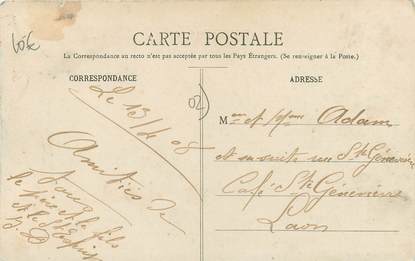 60k
CARTE POSTALE
La Correspondance au recto n'est pas acceptée par tous les Pays Étrangers. (Se renseigner à la Poste.)
CORRESPONDANCE
Le 13/4 08
Amitiés de
tous
le père et le fils
et le
J D
02
ADRESSE
Mr et Mme Adam
et en suite rue Ste Geneviève
Café Ste Geneviève
Laon